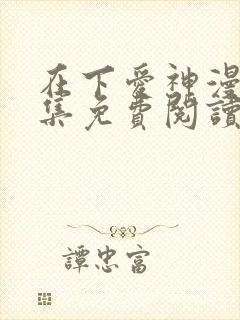 在下愛神漫
集免費閱讀
譚忠富